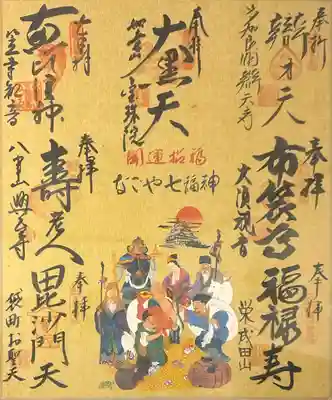 奉拝
辯才天
奉拝
大黒天
如意山
宝珠院
奉拝
恵比寿神
笠寺観音
開運招福
なごや七福神
奉拝
布袋尊
大須観音
奉拝
福禄寿
栄成田山
奉拝
寿老人
八事山興正寺
奉拝
毘沙門天
袋町お聖天